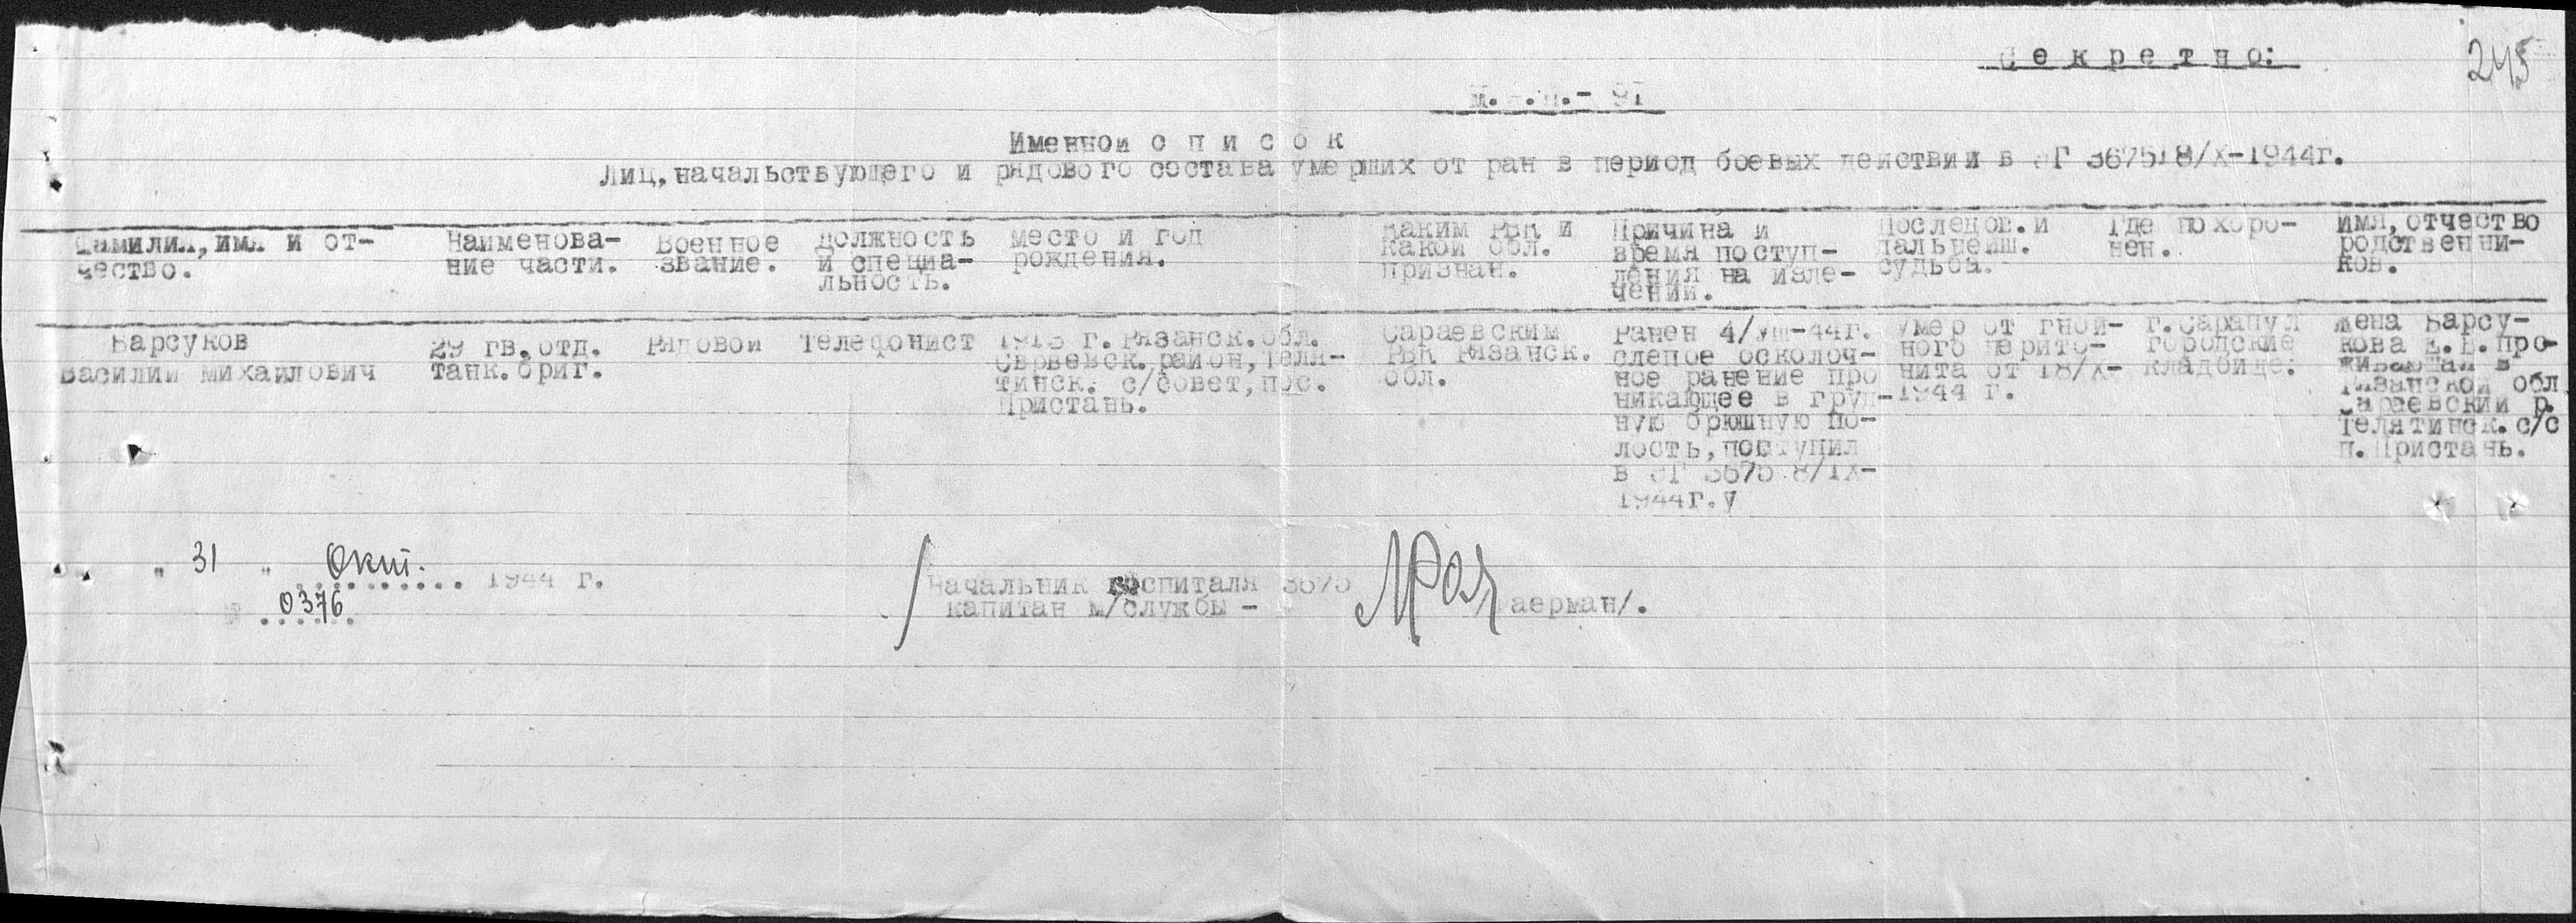 Секретно:
245
Именной список
Лиц, начальствующего и рядового состава умерших от ран в период боевых действий в ЭГ 3675 18/X-1944г.
Фамилия, имя и от-
чество.
Наименова-
ние части.
Военное
звание.
Должность
и специа-
льность.
Место и год
рождения.
Каким РВК и
какой обл.
признан.
Причина и
время поступ-
ления на изле-
чении.
Последов. и
дальнейш.
судьба.
Где похоро-
нен.
имя, отчество
родственни-
ков.
Барсуков
Василий Михайлович
29 гв.отд.
танк.бриг.
Рядовой
Телефонист
1913 г. Рязанск.обл.
район, Теля-
тинск. с/совет, пос.
Пристань.
Сараевским
РВК Рязанск.
обл.
Ранен 4/УШ-44г.
слепое осколоч-
ное ранение про
никающее в груд-
ную брюшную по-
лость, поступил
в ЭГ 3675 8/IX-
1944г. у
Умер от гной-
ного перито-
нита от 18/X-
1944 г.
г.Сарапул
городские
кладбище:
Жена Барсу-
кова про-
живающая в
Рязанской обл
Сараевский р.
Телятинск. с/с
п. Пристань.
" 31 " Окт. 1944 г.
0376
Начальник госпиталя 3675
капитан м/службы -
аерман/.